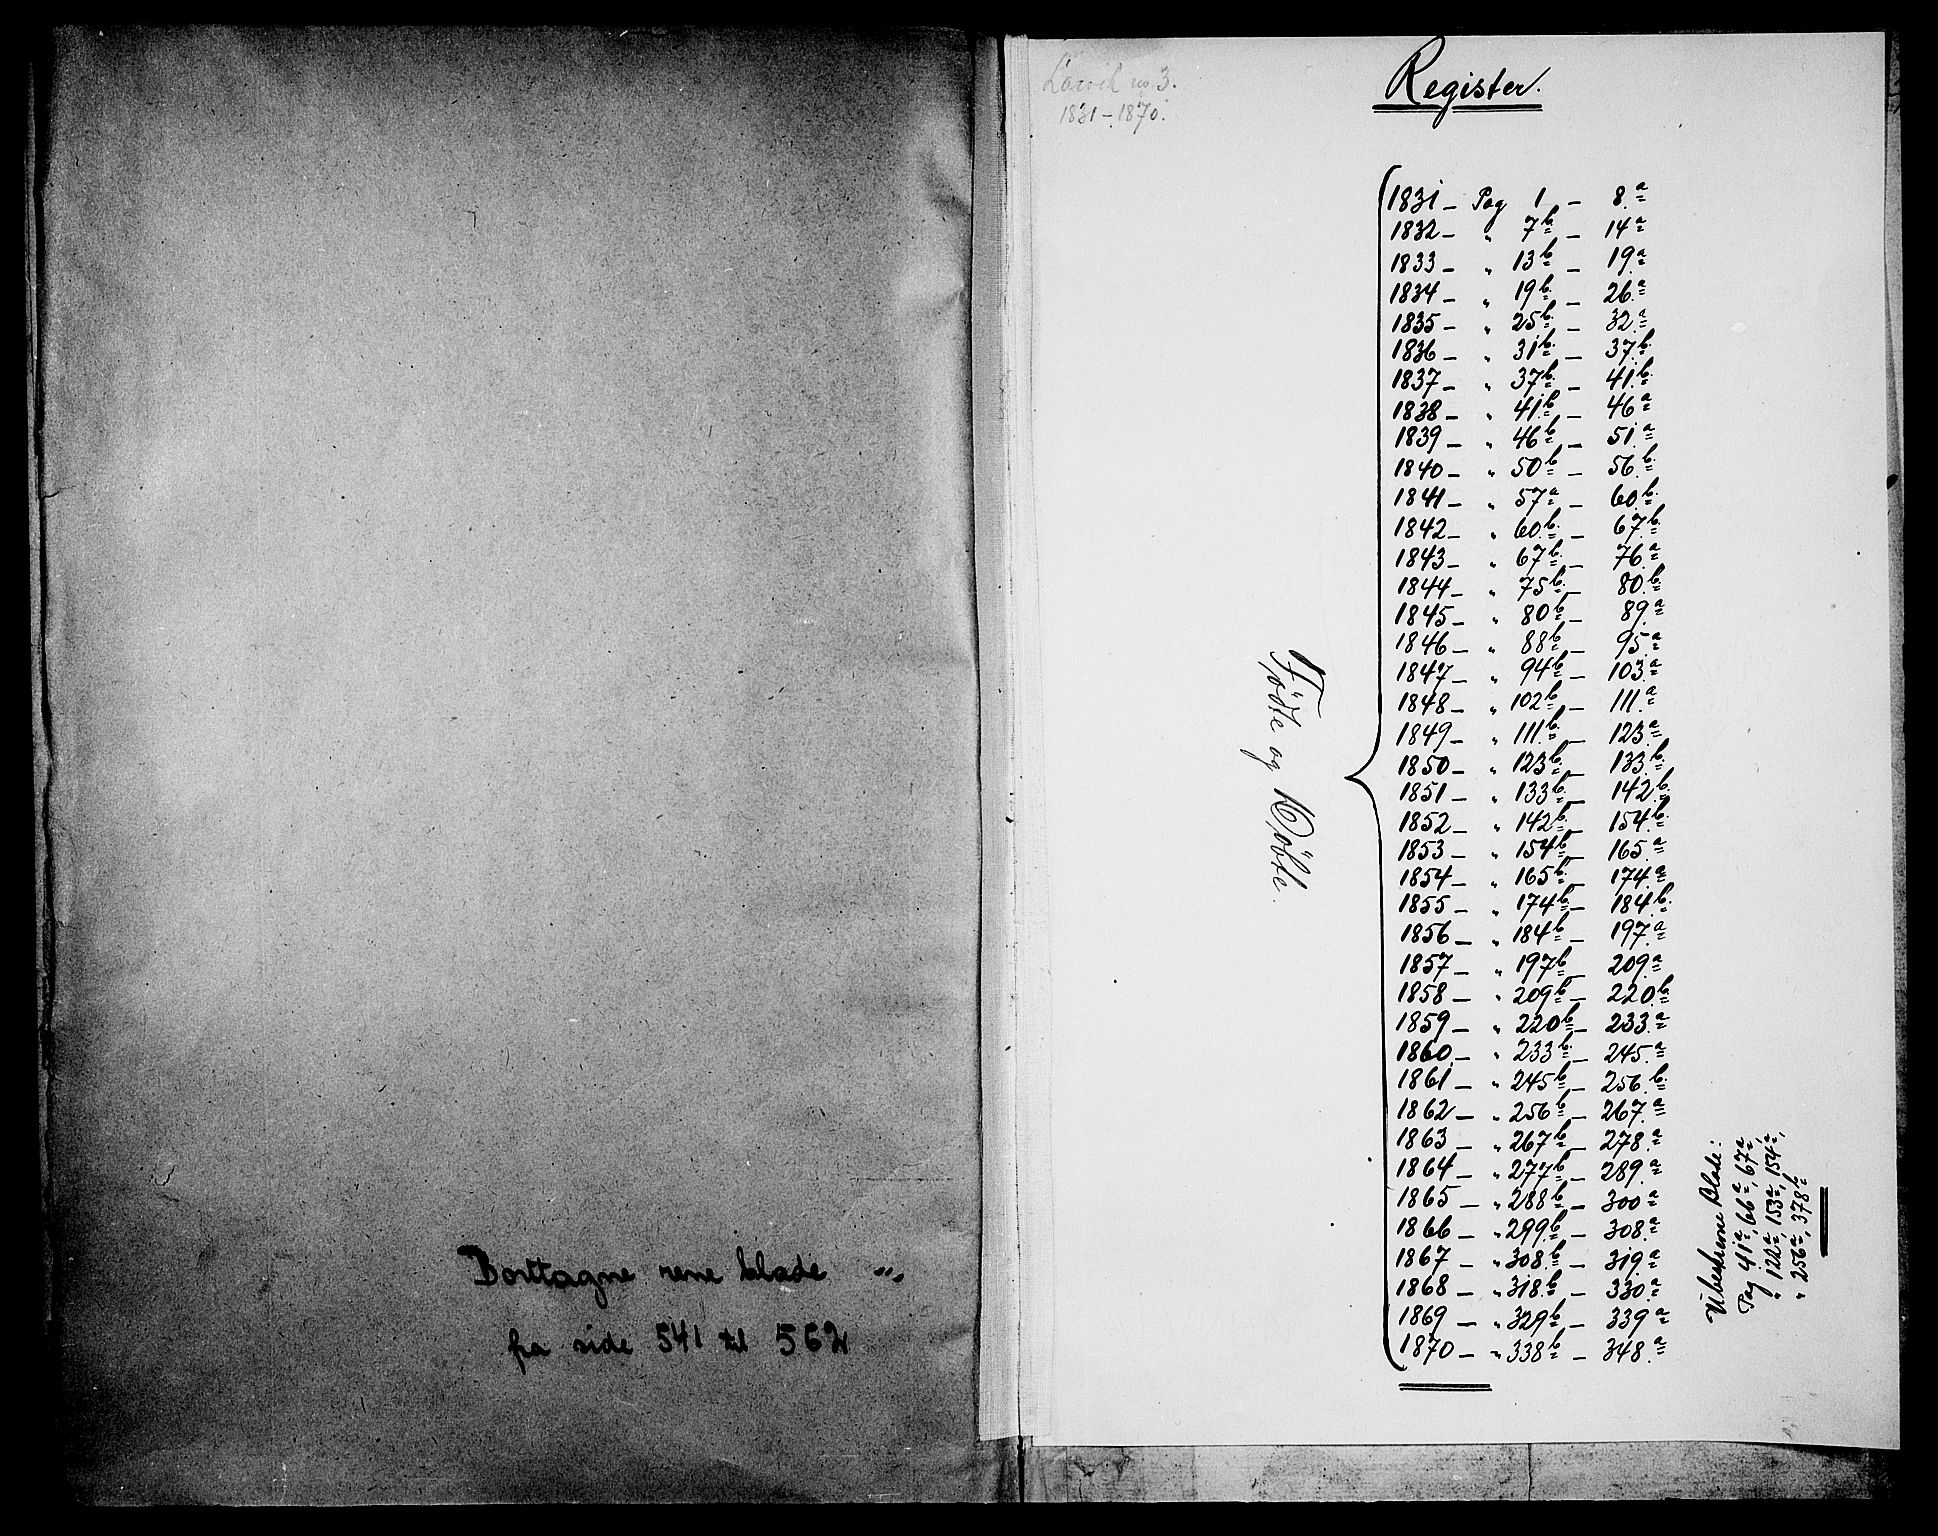 Borttagne rene blade
fra side 541 til 562
Larvik no. 3.
1831–1870.
Register.
Fødte og Døbte.
1831 – Pag 1 – 8.a
1832 – " 7b – 14a
1833 – " 13b – 19.a
1834 – " 19b – 26.a
1835 – " 25b – 32.a
1836 – " 31b – 37.b
1837 – " 37b – 41.b
1838 – " 41b – 46a
1839 – " 46b – 51.a
1840 – " 50b – 56.b
1841 – " 57a – 60.b
1842 – " 60b – 67b
1843 – " 67b – 76.a
1844 – " 75b – 80.b
1845 – " 80b – 89.a
1846 – " 88b – 95.a
1847 – " 94b – 103.a
1848 – " 102b – 111.a
1849 – " 111b – 123.a
1850 – " 123b – 133.b
1851 – " 133b – 142b
1852 – " 142b – 154.b
1853 – " 154b – 165.a
1854 – " 165b – 174.a
1855 – " 174b – 184.b
1856 – " 184b – 197.a
1857 – " 197b – 209.a
1858 – " 209b – 220b
1859 – " 220b – 233.a
1860 – " 233b – 245.a
1861 – " 245b – 256.b
1862 – " 256b – 267.a
1863 – " 267b – 278.a
1864 – " 277b – 289.a
1865 – " 288b – 300a
1866 – " 299b – 308.a
1867 – " 308b – 319.a
1868 – " 318.b – 330.a
1869 – " 329b – 339a
1870 – " 338b – 348.a
Ubeskrevne Blade:
Pag 41a, 66a, 67a,
" 122a, 153a, 154a,
" 256a, 378b